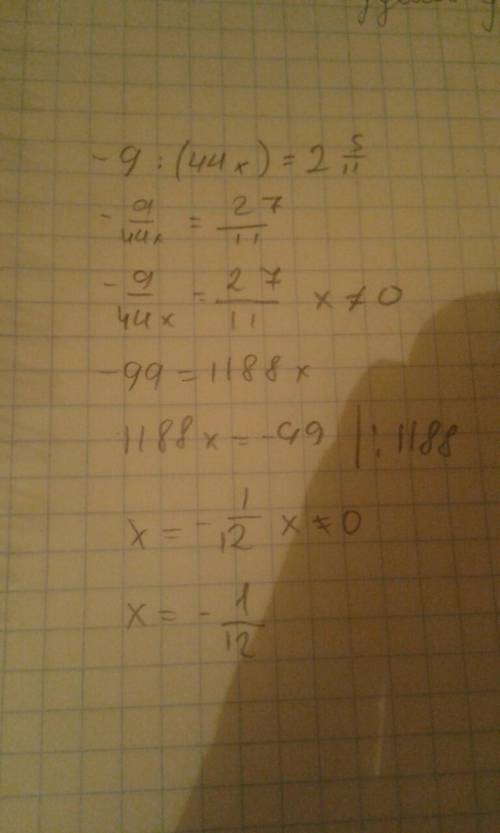 -9 : (44x) = 2 5/11
-9/44x = 27/11
-9/44x = 27/11 x ≠ 0
-99 = 1188x
1188x = -99 | : 1188
x = -1/12 x ≠ 0
x = -1/12